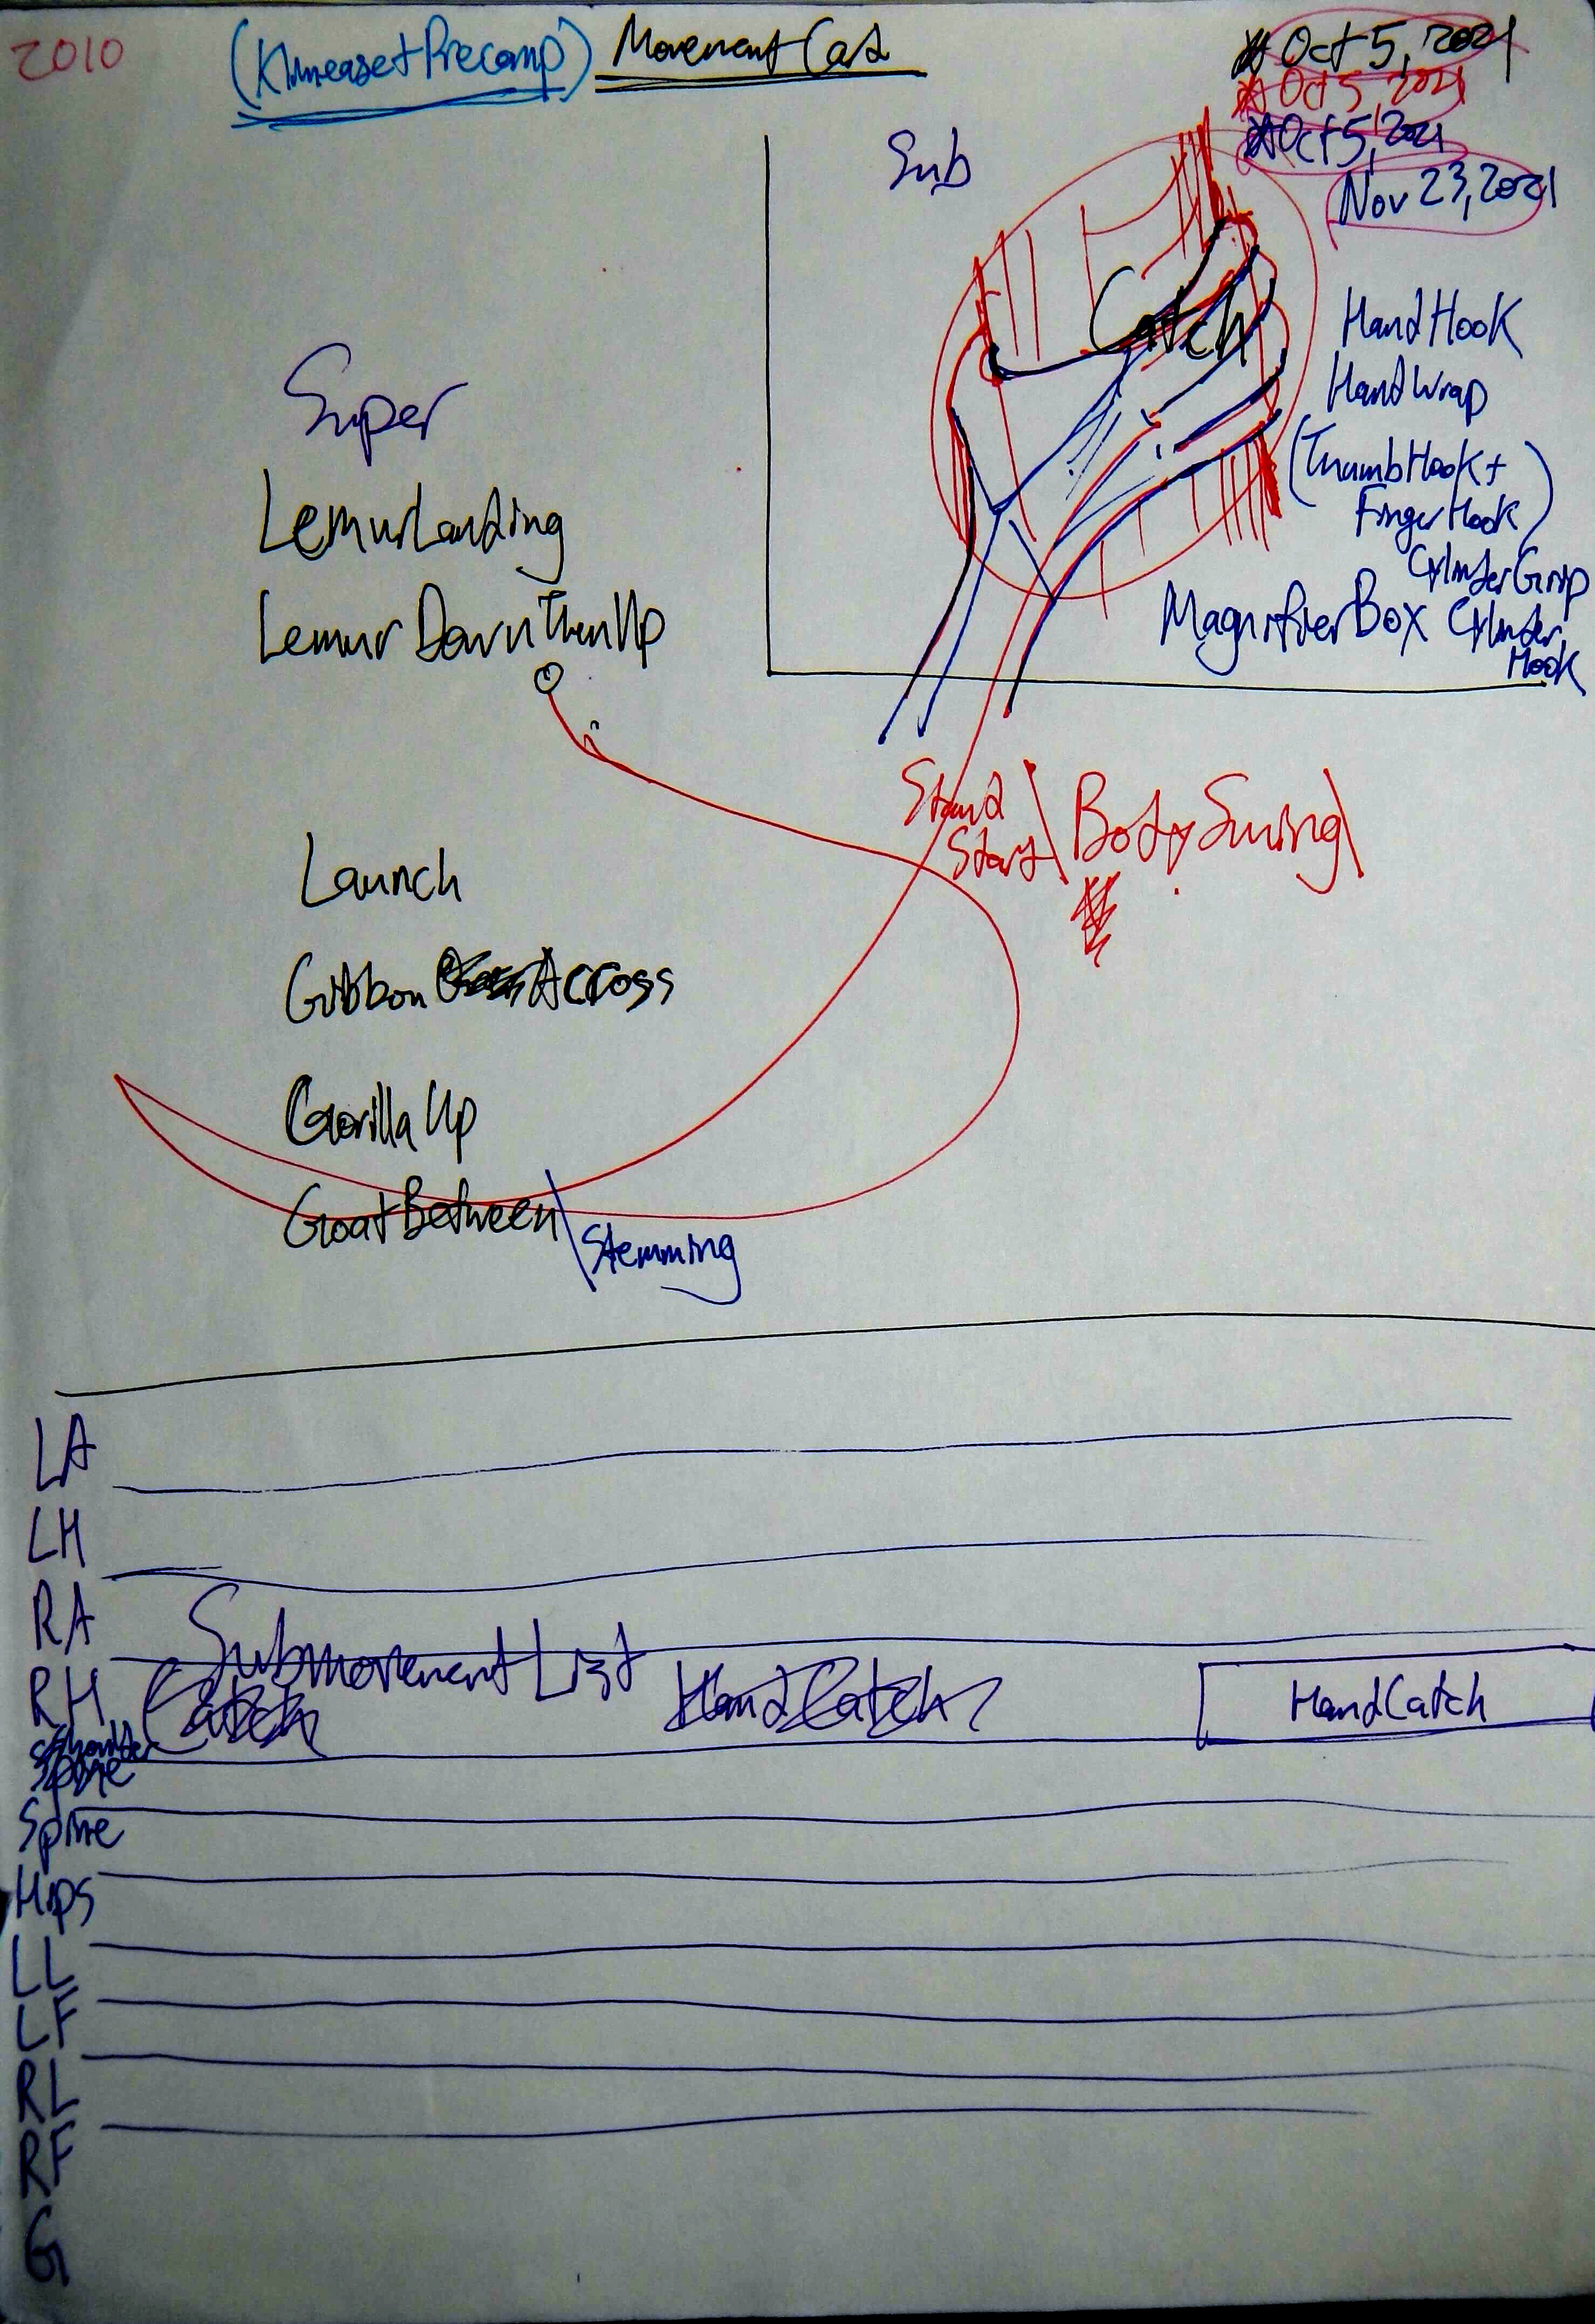 2010
Movement Card
Oct 5, 2021
Oct 5, 2021
Oct 5, 2021
Nov 23, 2021
Sub
Catch
HandHook
HandWrap
(ThumbHook +
FingerHook)
CylinderGrip
MagnifierBox Cylinder
Hook
Super
LemurLanding
Lemur DownThenUp
Stand
Start\ BodySwing\
Launch
Gibbon Across
Gorilla Up
GoatBetween\
Stemming
LA
LH
RA
Submovement List
RH
Catch
HandCatch
HandCatch
Shoulder
Spine
Spine
Hips
LL
LF
RL
RF
G